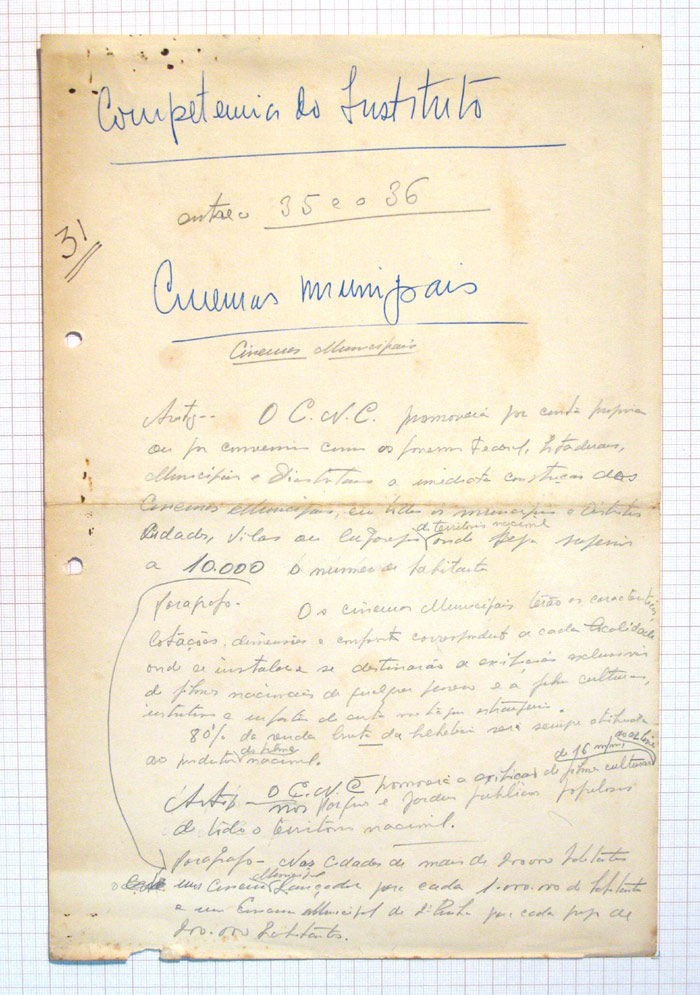 Competencia do Instituto
entre o 35 e o 36
31
Cinemas munipais
Cinemas Municipais
Artg-- O C.N.C. promoverá por conta propria
ou por convenios com os governos Federal, Estaduais,
Municipais e Distritais a imediata construção dos
Cinemas Municipais, em todos os municipios e distritos
de territorio nacional
Cidades, Vilas ou lugarejos onde seja superior
a 10.000 o numero de habitantes
Paragrafo- Os cinemas Municipais terão as caracteristicas,
lotações, dimensões e conforto correspondente a cada localidade
onde se instalar e se destinarão a exibições exclusivas
de filmes nacionais de qualquer genero e a filmes culturais,
80% da renda bruta da bilheteria será sempre atribuida
do filme
ao produtor nacional.
de 16 m/m
Artg- O C.N.C promoverá a exibição de filmes culturais
nos parques e jardins publicos populosos
de todo o territorio nacional.
Paragrafo- Nas cidades de mais de habitantes
Municipal
um Cinema Lançador para cada 1.000.000 de habitantes
e um Cinema Municipal de 2ª linha para cada de
habitantes.